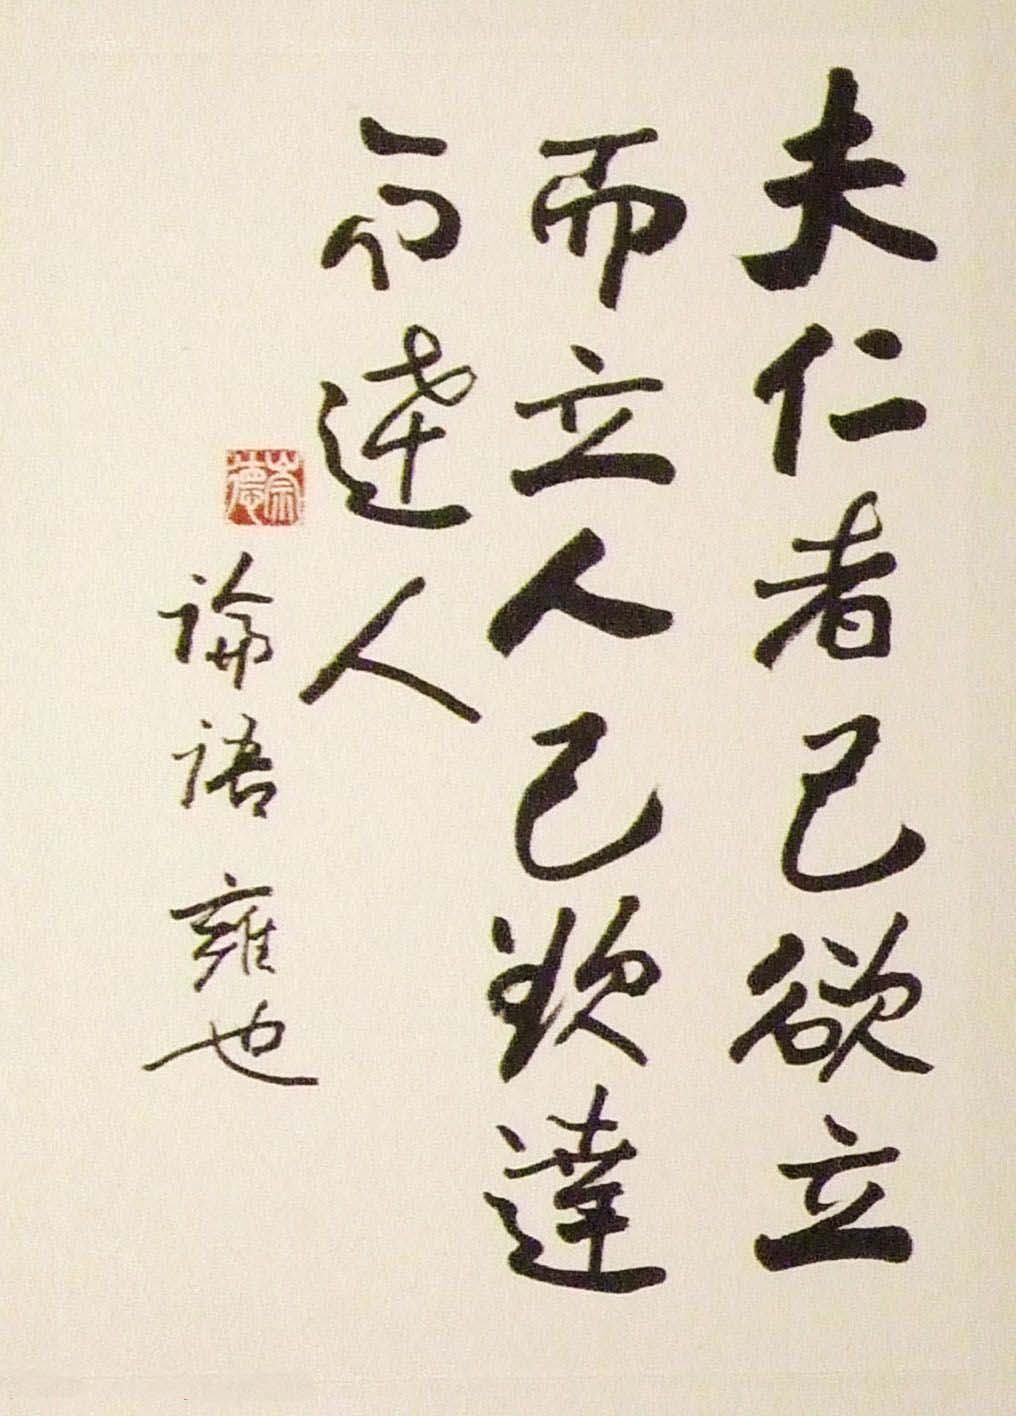 夫仁者己欲立
而立人己欲達
而達人
論語雍也
崇德